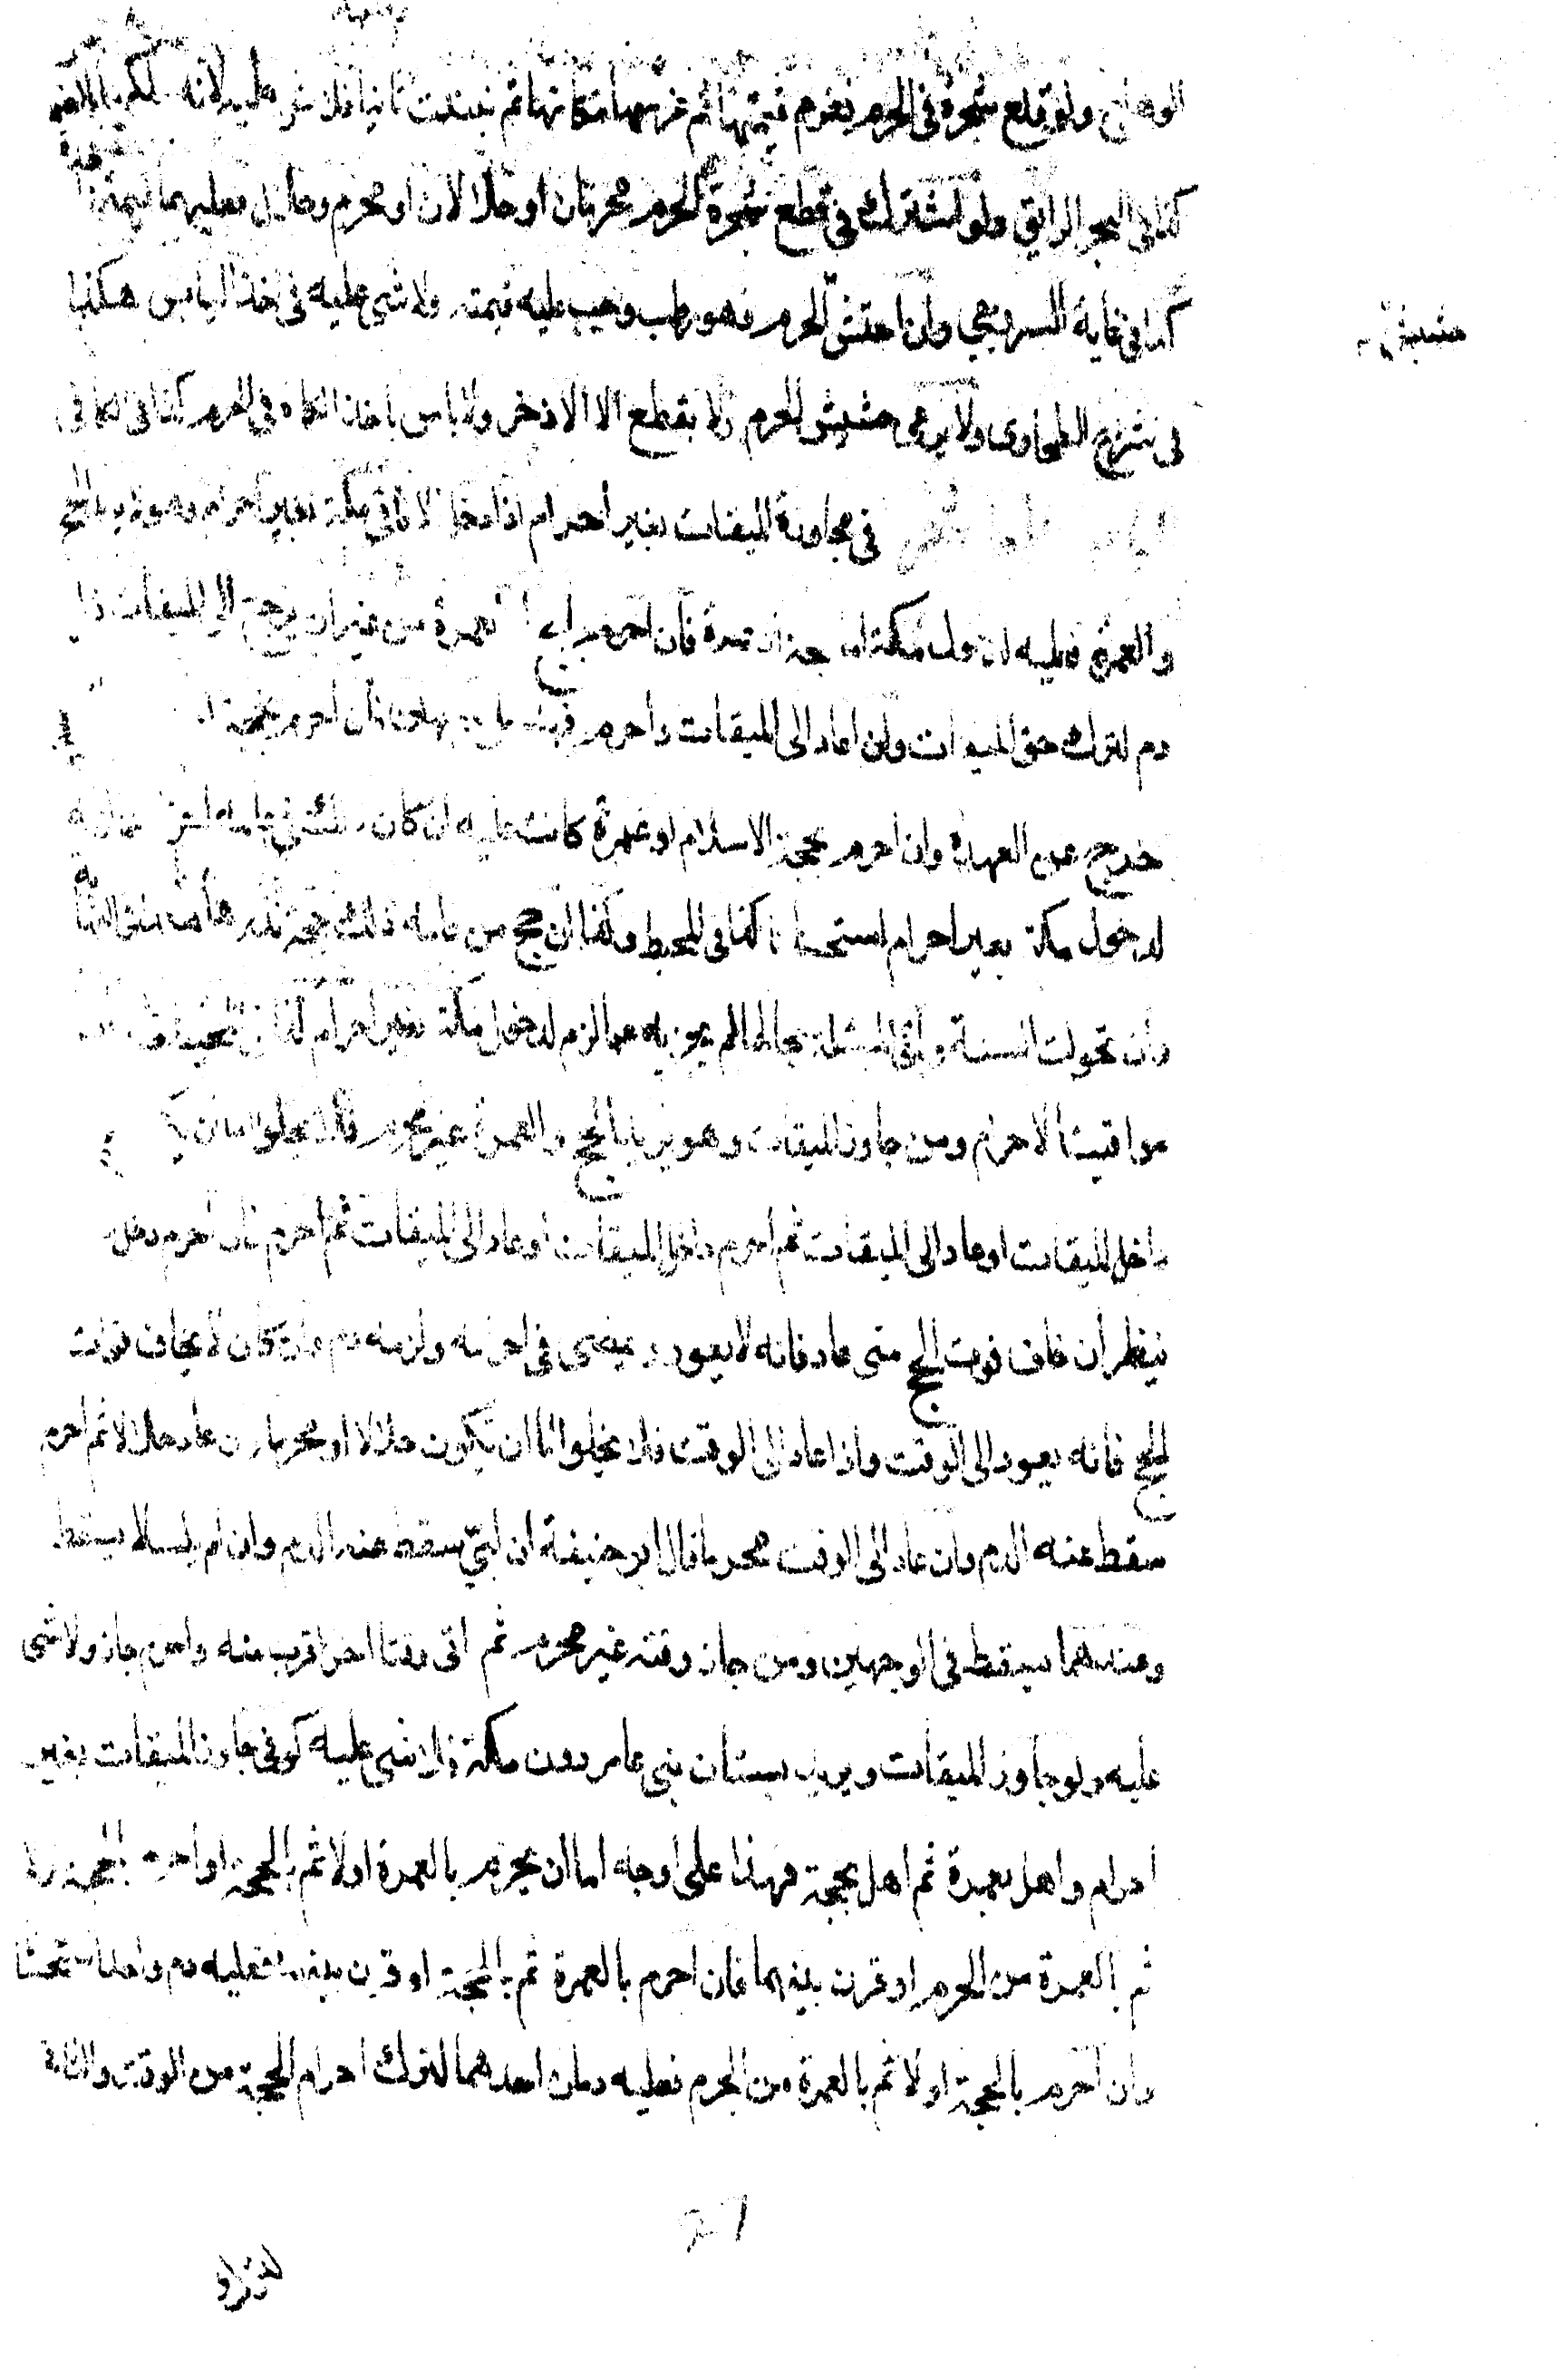 ولو قلع شجرة في الحرم فغرم قيمتها ثم غرسها مكانها ثم نبتت ثانيا فلا شي عليه لانه ملكها بالضمان
كذا في البحر الرايق ولو اشترك في قطع شجرة الحرم محرمان او حلالان او محرم وحلال فعليهما قيمة
كما في غاية السروجي وان احتش الحرم فهو رطب وجب عليه قيمته ولا شي عليه في اخذ اليابس هكذا
حشيش
في شرح الطحاوي ولا يرعى حشيش الحرم ولا يقطع الا الاذخر ولا باس باخذ الكماه في الحرم كذا في الكافي
في مجاوزة الميقات بغير احرام اذا دخل الافاقي مكة بغير احرام وهو يريد الحج
والعمرة فعليه لدخول مكة اما حجة او عمرة فان احرم بالحج او العمرة من غير ان يرجع الى الميقات
دم لترك حق الميقات وان اعاد الى الميقات واحرم فان احرم بحجة
خرج عن العهدة وان احرم بحجة الاسلام او عمرة كانت عليه ان كان ذلك في عامه
لدخول مكة بغير احرام استحسانا كذا في المحيط وكذا ان حج من عامه ذلك حجة نذرها
وان تحولت السنة وباقي المسئلة بحالها لم يجزيه عما لزم لدخول مكة بغير احرام كذا في
مواقيت الاحرام ومن جاوز الميقات وهو يريد الحج والعمرة غير محرم فلا يخلوا اما ان يكون
داخل الميقات او عاد الى الميقات ثم احرم داخل الميقات او عاد الى الميقات ثم احرم فان احرم داخل
ينظر ان خاف فوت الحج متى عاد فانه لا يعود ويمضى في احرامه ولزمه دم وان كان لا يخاف فوات
الحج فانه يعود الى الوقت واذا عاد الى الوقت فلا يخلوا اما ان يكون حلالا او محرما فان عاد حلالا ثم احرم
سقط عنه الدم وان عاد الى الوقت محرما قال ابو حنيفة ان لبي سقط عنه الدم وان لم يلب لا يسقط
وعندهما يسقط في الوجهين ومن جاز وقته غير محرم ثم اتى وقتا اخر اقرب منه واحرم جاز ولا شي
عليه ولو جاوز الميقات ويريد بستان بني عامر دون مكة فلا شي عليه كوفي جاوز الميقات بغير
احرام واهل بعمرة ثم اهل بحجة فهذا على اوجه اما ان يحرم بالعمرة اولا ثم بالحجة او احرم بالحجة اولا
ثم بالعمرة من الحرم او قرن بينهما فان احرم بالعمرة ثم بالحجة او قرن بينهما فعليه دم واحد استحسانا
وان احرم بالحجة اولا ثم بالعمرة من الحرم فعليه دمان احدهما لترك احرام الحجة من الوقت والثانية